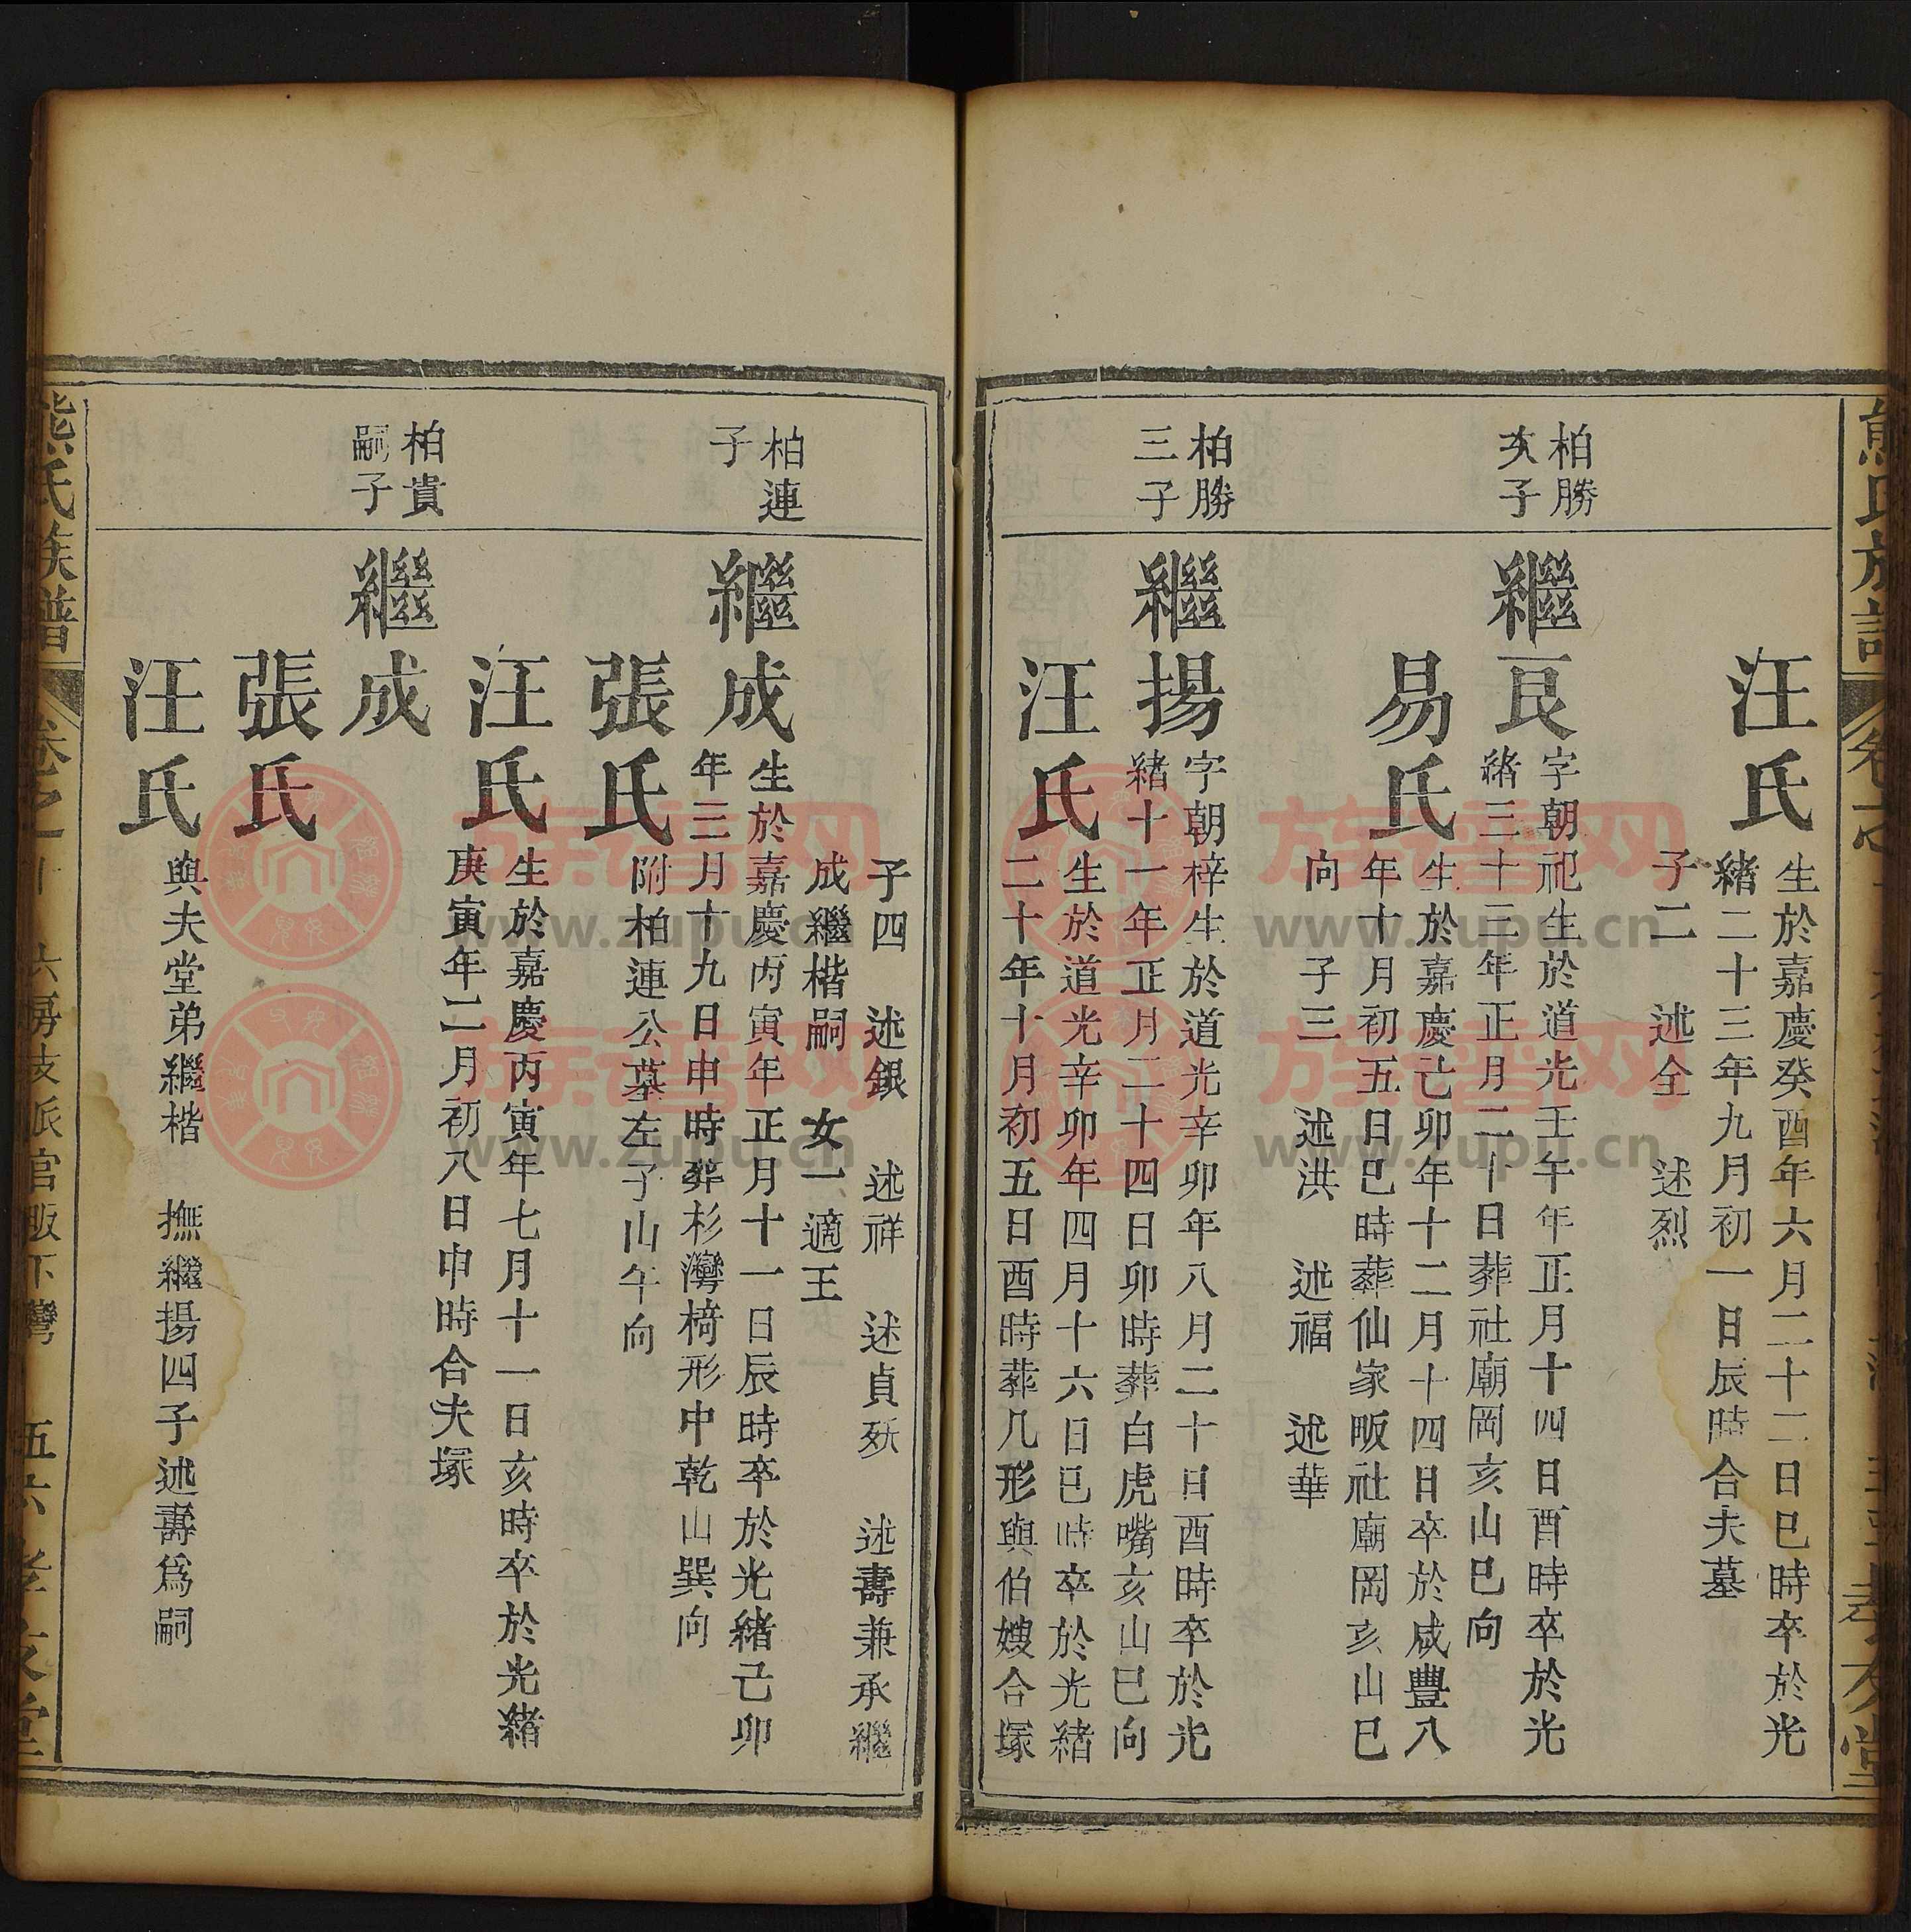 汪氏
生於嘉慶癸酉年六月二十二日巳時卒於光
緒二十三年九月初一日辰時合夫墓
子二　述全　述烈
柏勝
次子
繼良
字朝祀生於道光壬午年正月十四日酉時卒於光
緒三十三年正月二十日葬社廟岡亥山巳向
易氏
生於嘉慶己卯年十二月十四日卒於咸豐八
年十月初五日巳時葬仙家畈社廟岡亥山巳
向　子三　述洪　述福　述華
柏勝
三子
繼揚
字朝梓生於道光辛卯年八月二十日酉時卒於光
緒十一年正月二十四日卯時葬白虎嘴亥山巳向
汪氏
生於道光辛卯年四月十六日巳時卒於光緒
二十年十月初五日酉時葬几形與伯嫂合塚
子四　述銀　述祥　述貞殀　述壽兼承繼
成繼楷嗣　女一適王
柏連
子
繼成
生於嘉慶丙寅年正月十一日辰時卒於光緒己卯
年三月十九日申時葬杉灣椅形中乾山巽向
張氏
附柏連公墓左子山午向
汪氏
生於嘉慶丙寅年七月十一日亥時卒於光緒
庚寅年二月初八日申時合夫塚
柏貴
嗣子
繼成
張氏
汪氏
與夫堂弟繼楷　撫繼揚四子述壽爲嗣
熊氏族譜　卷之十　六房支派官畈下灣　五六　孝友堂
族譜网
www.zupu.cn
族譜网
www.zupu.cn
族譜网
www.zupu.cn
族譜网
www.zupu.cn